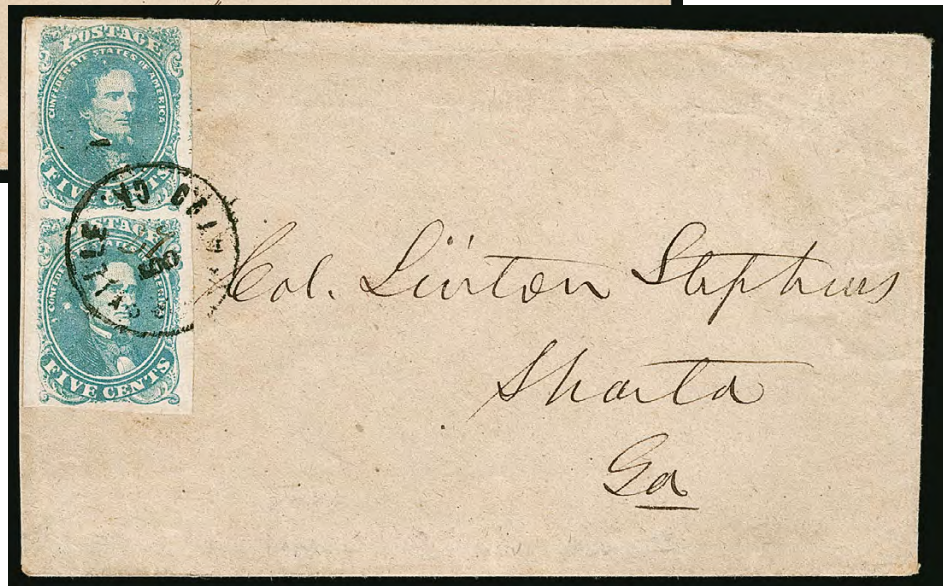 POSTAGE
CONFEDERATE STATES OF AMERICA
FIVE CENTS
POSTAGE
CONFEDERATE STATES AMERICA
FIVE CENTS
GA.
Col. Linton Stephens
Sparta
Ga